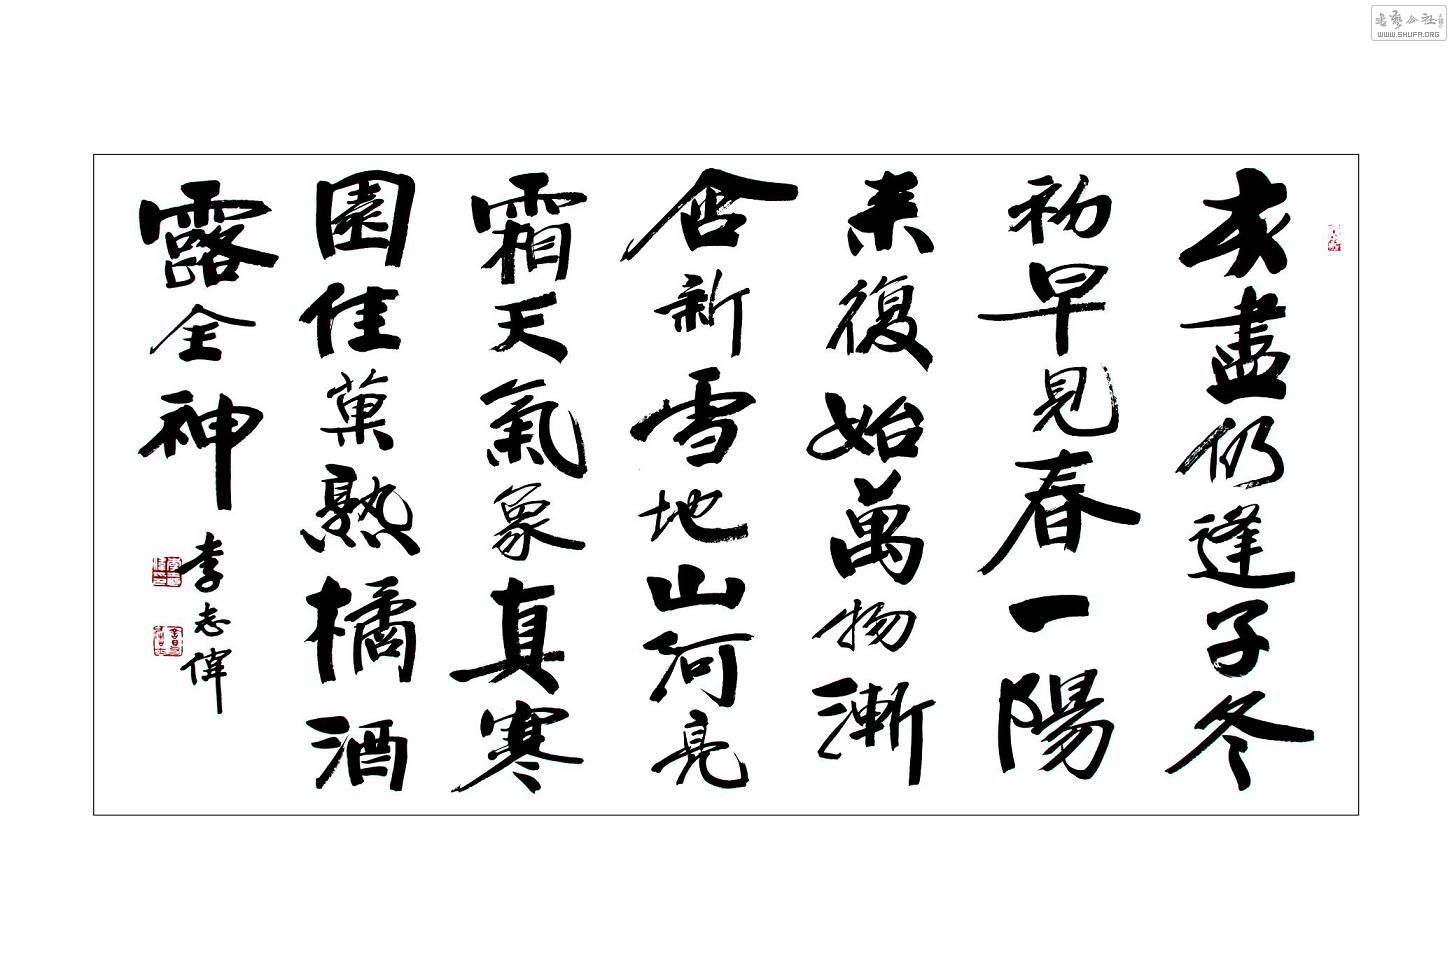 書藝公社
WWW.SHUFA.ORG
亥盡仍逢子冬
初早見春一陽
来復始萬物漸
含新雪地山河亮
霜天氣象真寒
園佳菓熟橘酒
露全神
李志偉